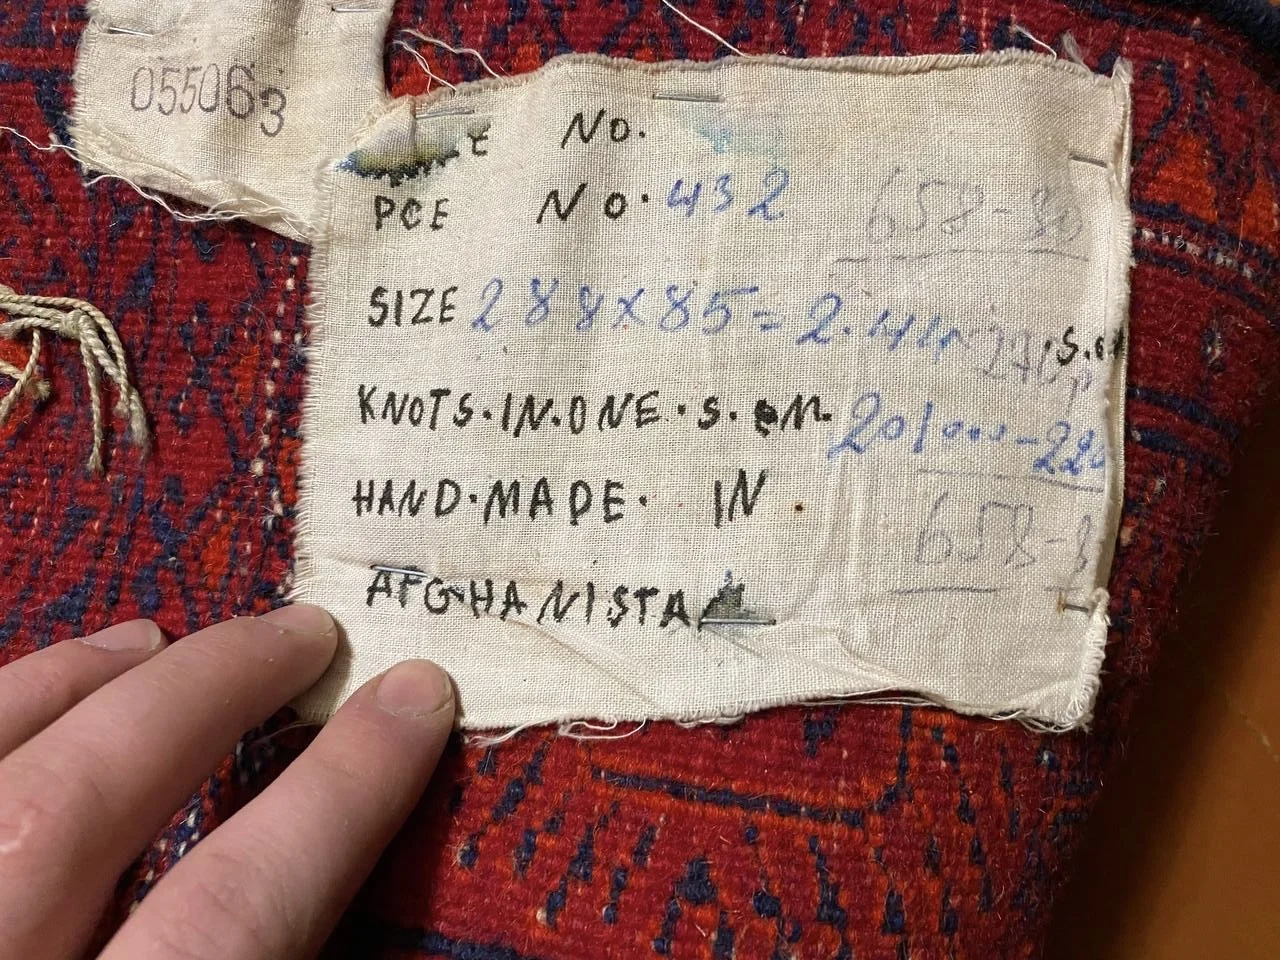 055063
No.
PCE No. 432
658-30
SIZE 288x85=2.44
KNOTS.IN.ONE.S.
HAND.MADE. IN
658-3
AFGHANISTAN